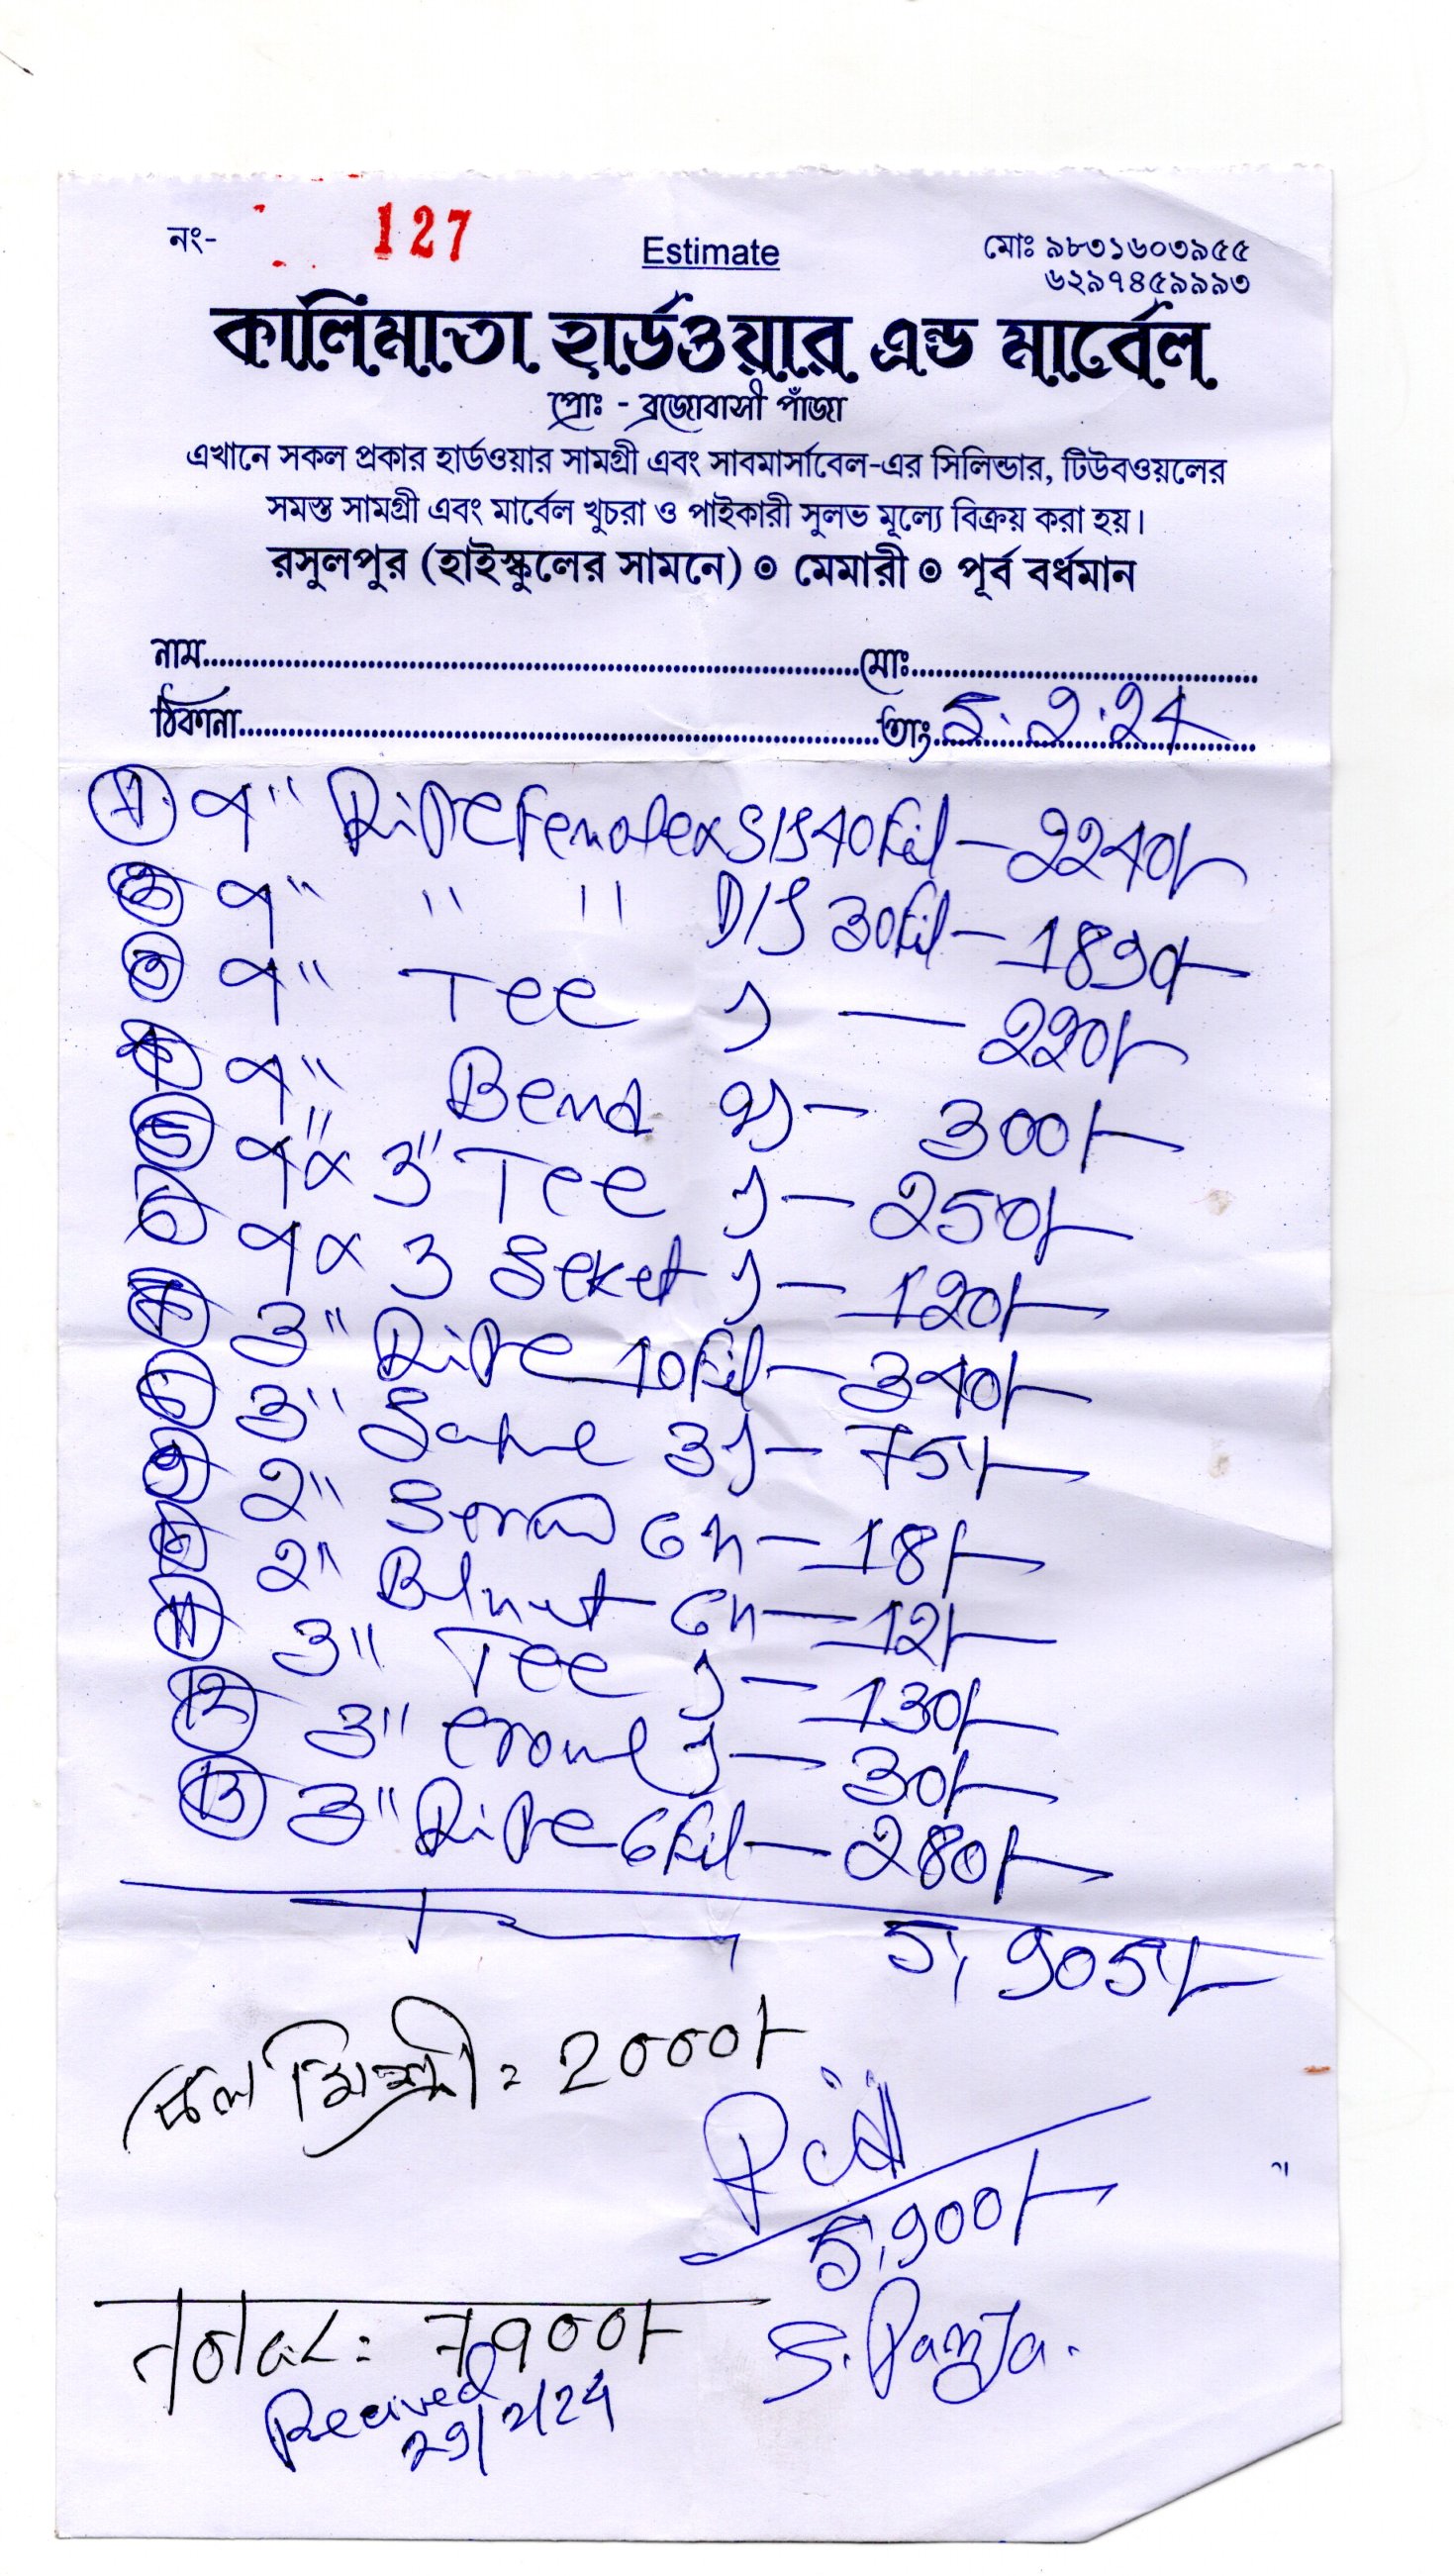 নং- 127
Estimate
মোঃ ৯৮৩১৬০৩৯৫৫
৬২৯৭৪৫৯৯৯৩
কালিমাতা হার্ডওয়ার এন্ড মার্বেল
প্রোঃ - ব্রজোবাসী পাঁজা
এখানে সকল প্রকার হার্ডওয়ার সামগ্রী এবং সাবমার্সাবেল-এর সিলিন্ডার, টিউবওয়লের
সমস্ত সামগ্রী এবং মার্বেল খুচরা ও পাইকারী সুলভ মূল্যে বিক্রয় করা হয়।
রসুলপুর (হাইস্কুলের সামনে) ⊙ মেমারী ⊙ পূর্ব বর্ধমান
নাম..........মোঃ..........
ঠিকানা..........তাং 5.2.24
① 4" Pipe S/S 40 - 2240/-
② 4" " " D/S 30 - 1890/-
③ 4" Tee — 220/-
④ 4" Bend - 300/-
⑤ 4" x 3" Tee - 250/-
4 x 3 Soket - 120/-
3" Pipe 10 - 340/-
3" - 75/-
2" - 18/-
2" - 12/-
⑪ 3" Tee - 130/-
⑫ 3" - 30/-
⑬ 3" Pipe 6 - 280/-
5,905/-
কল মিস্ত্রী = 2000/-
5,900/-
Total = 7900/-
S. Panja.
Recived
29/2/24